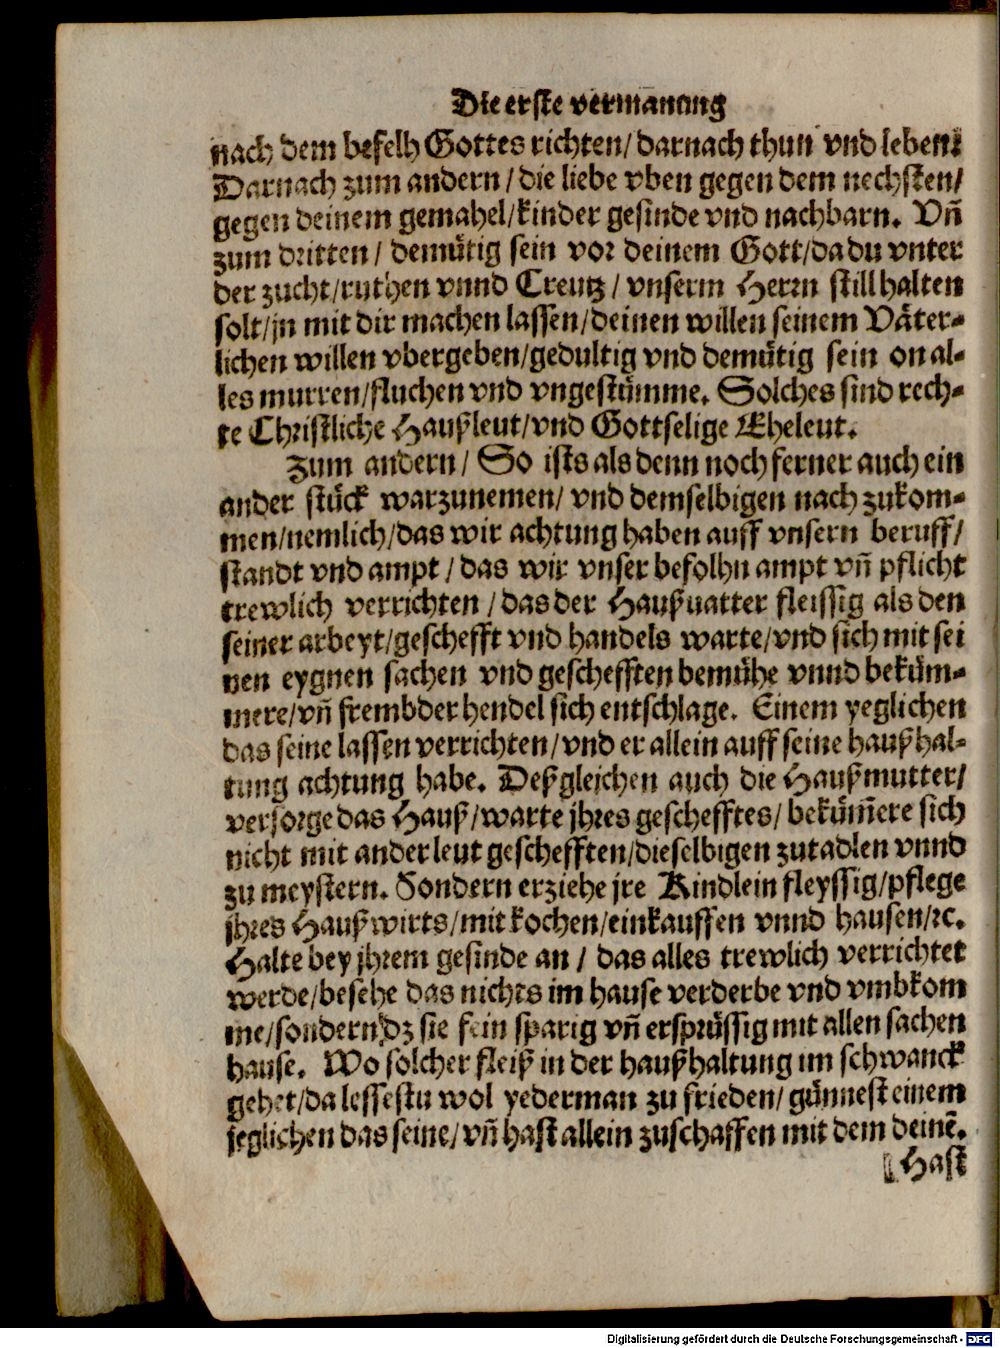 Die erste vermanung
nach dem befelh Gottes richten/ darnach thun vnd leben:
Darnach zum andern / die liebe vben gegen dem nechsten/
gegen deinem gemahel/kinder gesinde vnd nachbarn. Vñ
zum dritten / demütig sein vor deinem Gott/da du vnter
der zucht/ruthen vnnd Creutz / vnserm Herrn still halten
solt/jn mit dir machen lassen/deinen willen seinem Väter-
lichen willen vbergeben/gedultig vnd demütig sein on al-
les murren/fluchen vnd vngestümme. Solches sind rech-
te Christliche Haußleut/vnd Gottselige Eheleut.
Zum andern / So ists als denn noch ferner auch ein
ander stück warzunemen/ vnd demselbigen nach zukom-
men/nemlich/das wir achtung haben auff vnsern beruff/
standt vnd ampt / das wir vnser befolhn ampt vñ pflicht
trewlich verrichten / das der Haußuatter fleissig als den
seiner arbeyt/geschefft vnd handels warte/vnd sich mit sei
nen eygnen sachen vnd geschefften bemühe vnnd beküm-
mere/vñ frembder hendel sich entschlage. Einem yeglichen
das seine lassen verrichten/vnd er allein auff seine haußhal-
tung achtung habe. Deßgleichen auch die Haußmutter/
versorge das Hauß/warte jhres geschefftes/ beküm̃ere sich
nicht mit ander leut geschefften/dieselbigen zutadlen vnnd
zu meystern. Sondern erziehe jre Kindlein fleyssig/pflege
jhres Haußwirts/mit kochen/einkauffen vnnd hausen/ꝛc.
Halte bey jhrem gesinde an / das alles trewlich verrichtet
werde/besehe das nichts im hause verderbe vnd vmbkom
me/sondern dz sie fein sparig vñ ersprüssig mit allen sachen
hause. Wo solcher fleiß in der haußhaltung im schwanck
gehet/da lessestu wol yederman zu frieden/ günnest einem
jeglichen das seine/vñ hast allein zuschaffen mit dem deinẽ.
Hast
Digitalisierung gefördert durch die Deutsche Forschungsgemeinschaft - DFG